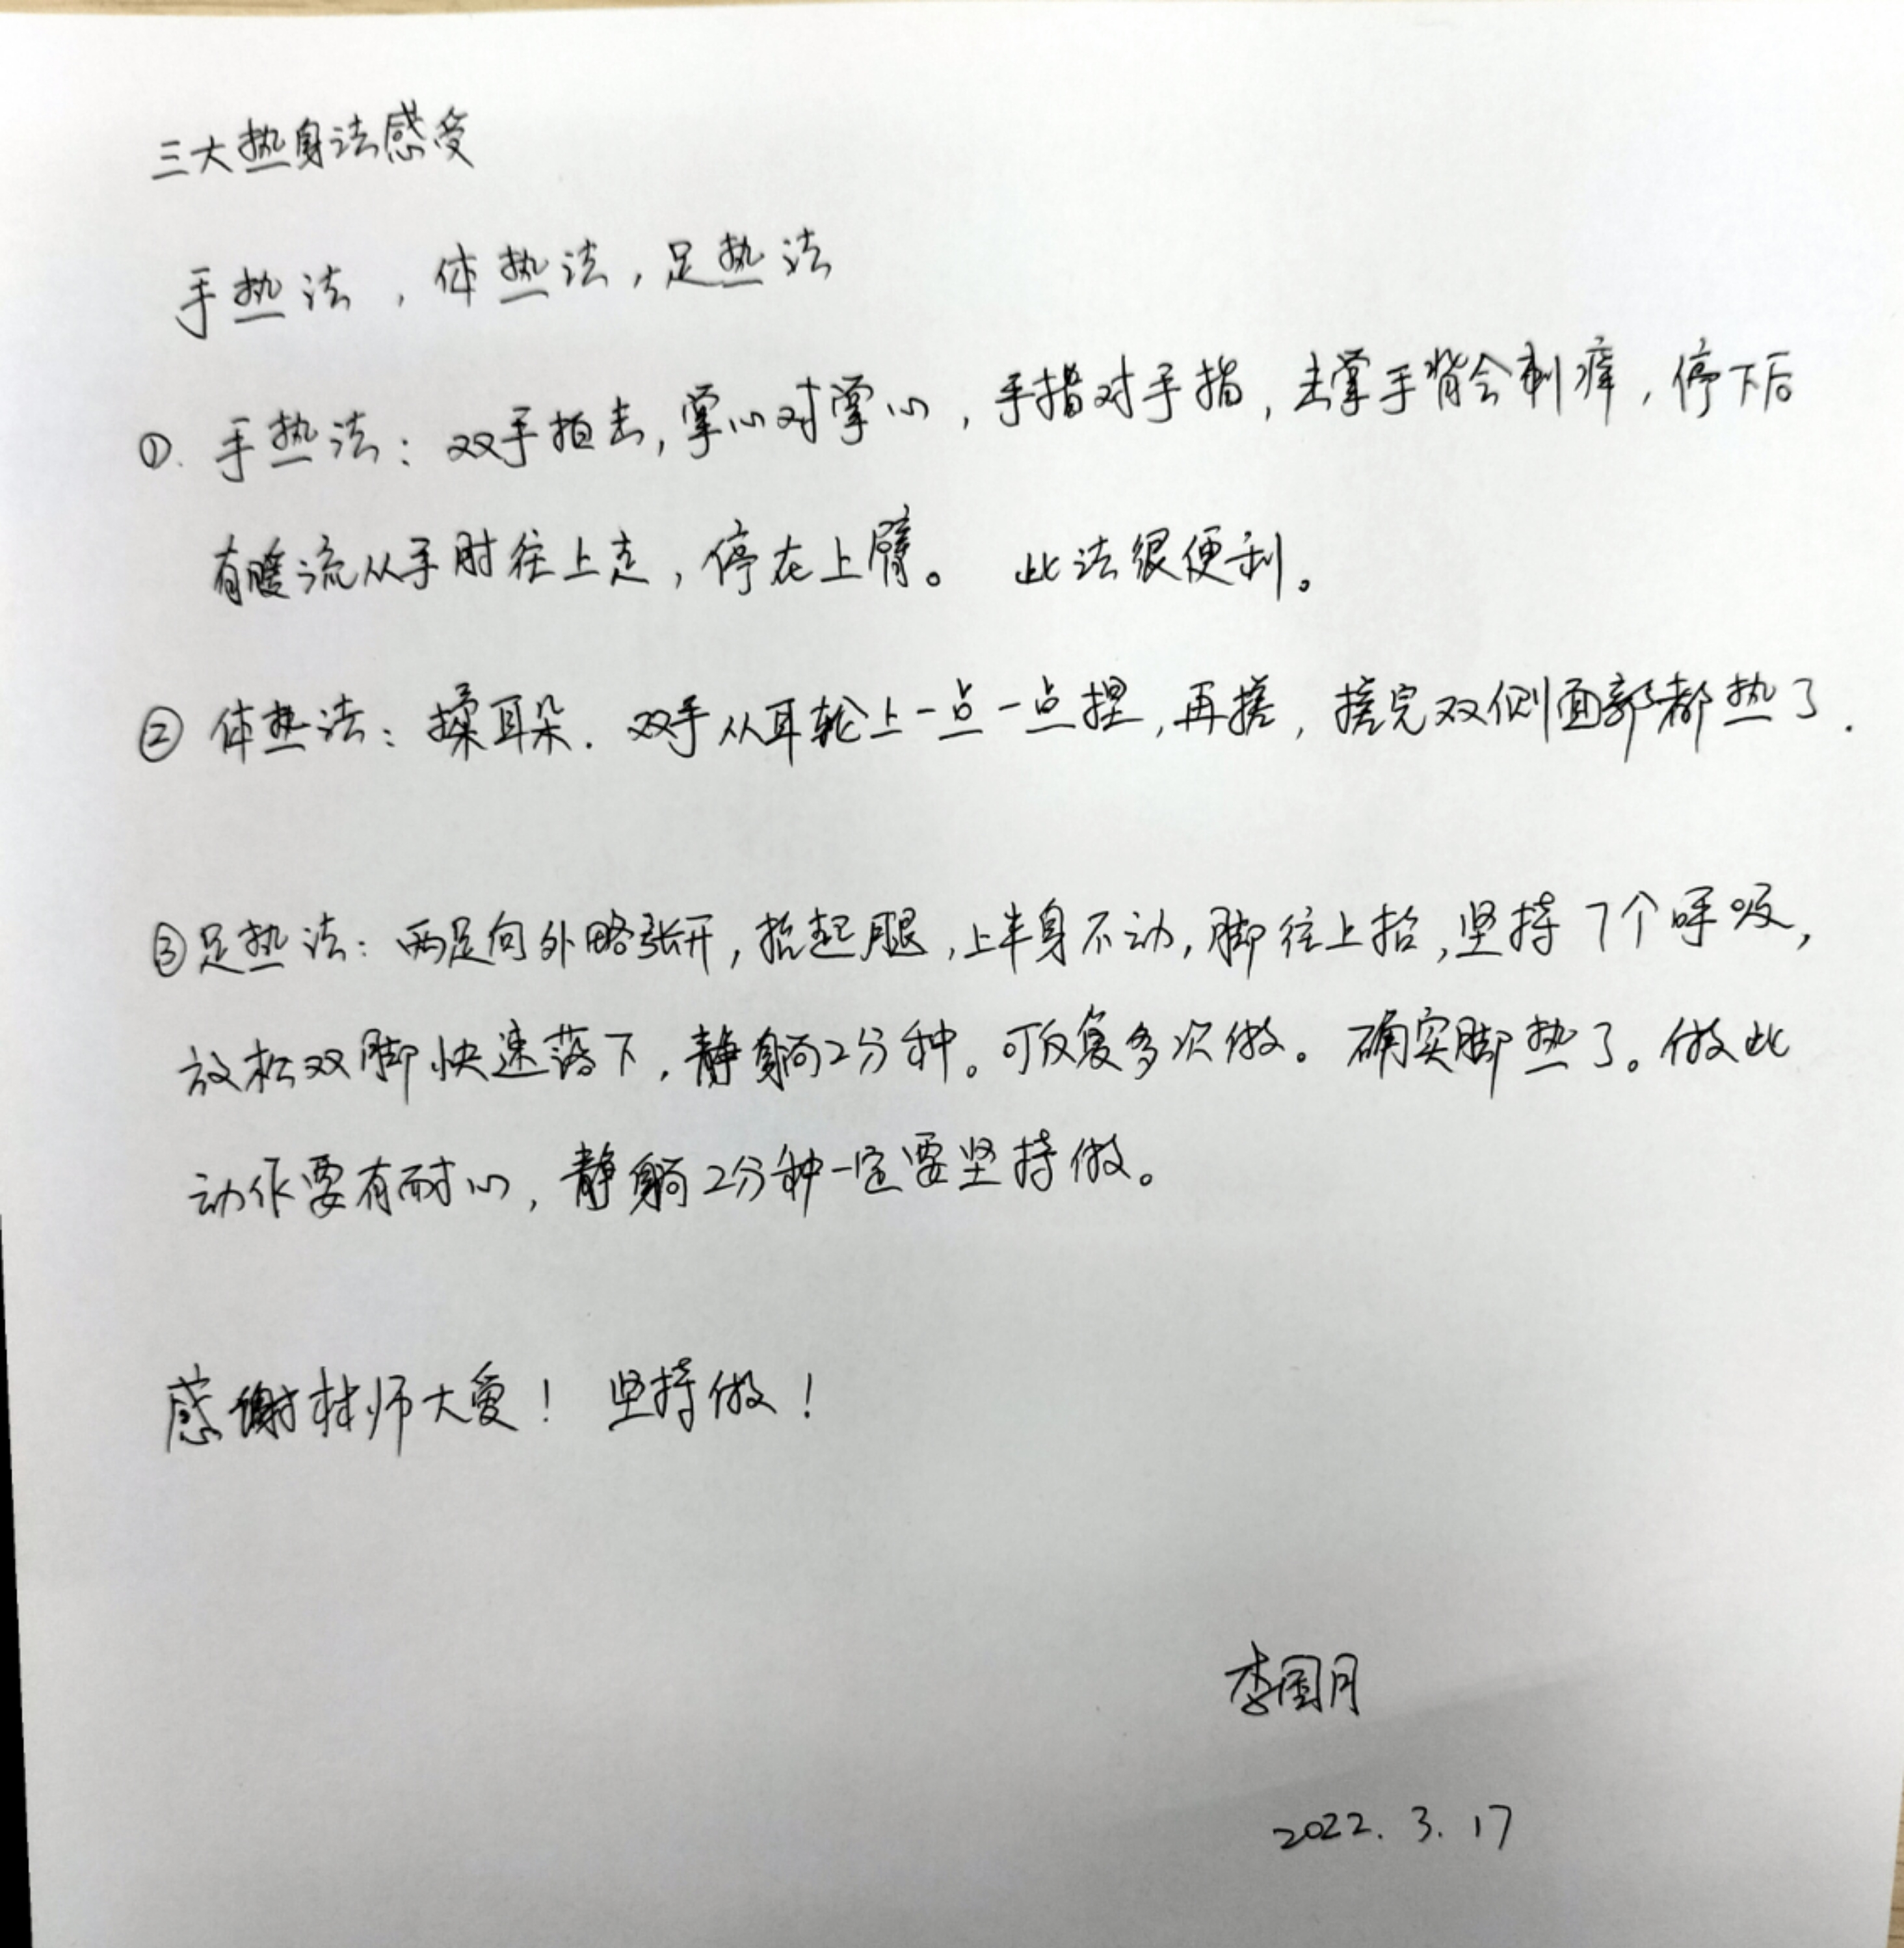 三大热身法感受
手热法，体热法，足热法
①. 手热法：双手拍击，掌心对掌心，手指对手指，击掌手背会刺痒，停下后
有暖流从手肘往上走，停在上臂。 此法很便利。
② 体热法：揉耳朵. 双手从耳轮上一点一点捏，再搓，搓完双侧面部都热了.
③足热法：两足向外略张开，抬起腿，上半身不动，脚往上抬，坚持7个呼吸，
放松双脚快速落下，静躺2分种。可反复多次做。确实脚热了。做此
动作要有耐心，静躺2分种一定要坚持做。
感谢林师大爱！ 坚持做！
李国月
2022. 3. 17